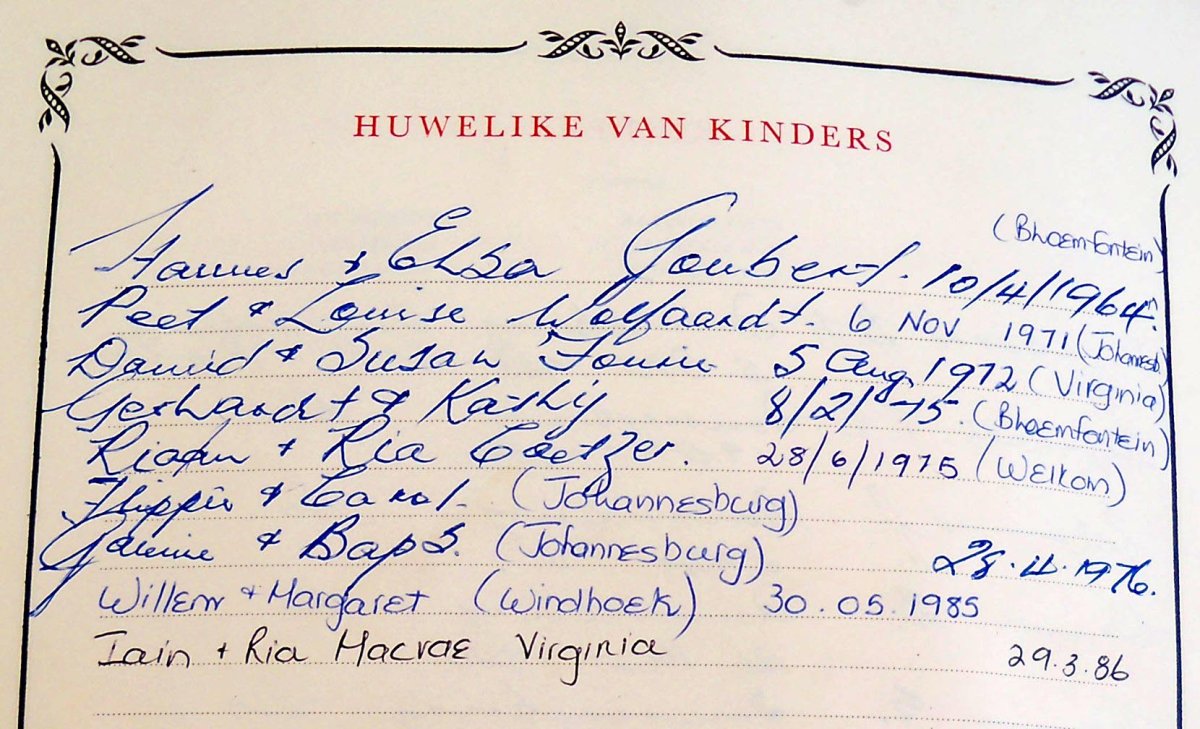 HUWELIKE VAN KINDERS
(Bloemfontein)
Hannes & Elsa Joubert. 10/4/1964.
Peet & Louise Wolfaardt. 6 NOV 1971 (Johannesb)
Dawid & Susan Fourie 5 Aug 1972 (Virginia)
Gerhardt & Kathy 8/2/75. (Bloemfontein)
Riaan & Ria Coetzer. 28/6/1975 (Welkom)
Flippie & Carol. (Johannesburg)
& Baps. (Johannesburg) 28.11.1976.
Willem & Margaret (Windhoek) 30.05.1985
Iain + Ria Macrae Virginia 29.3.86